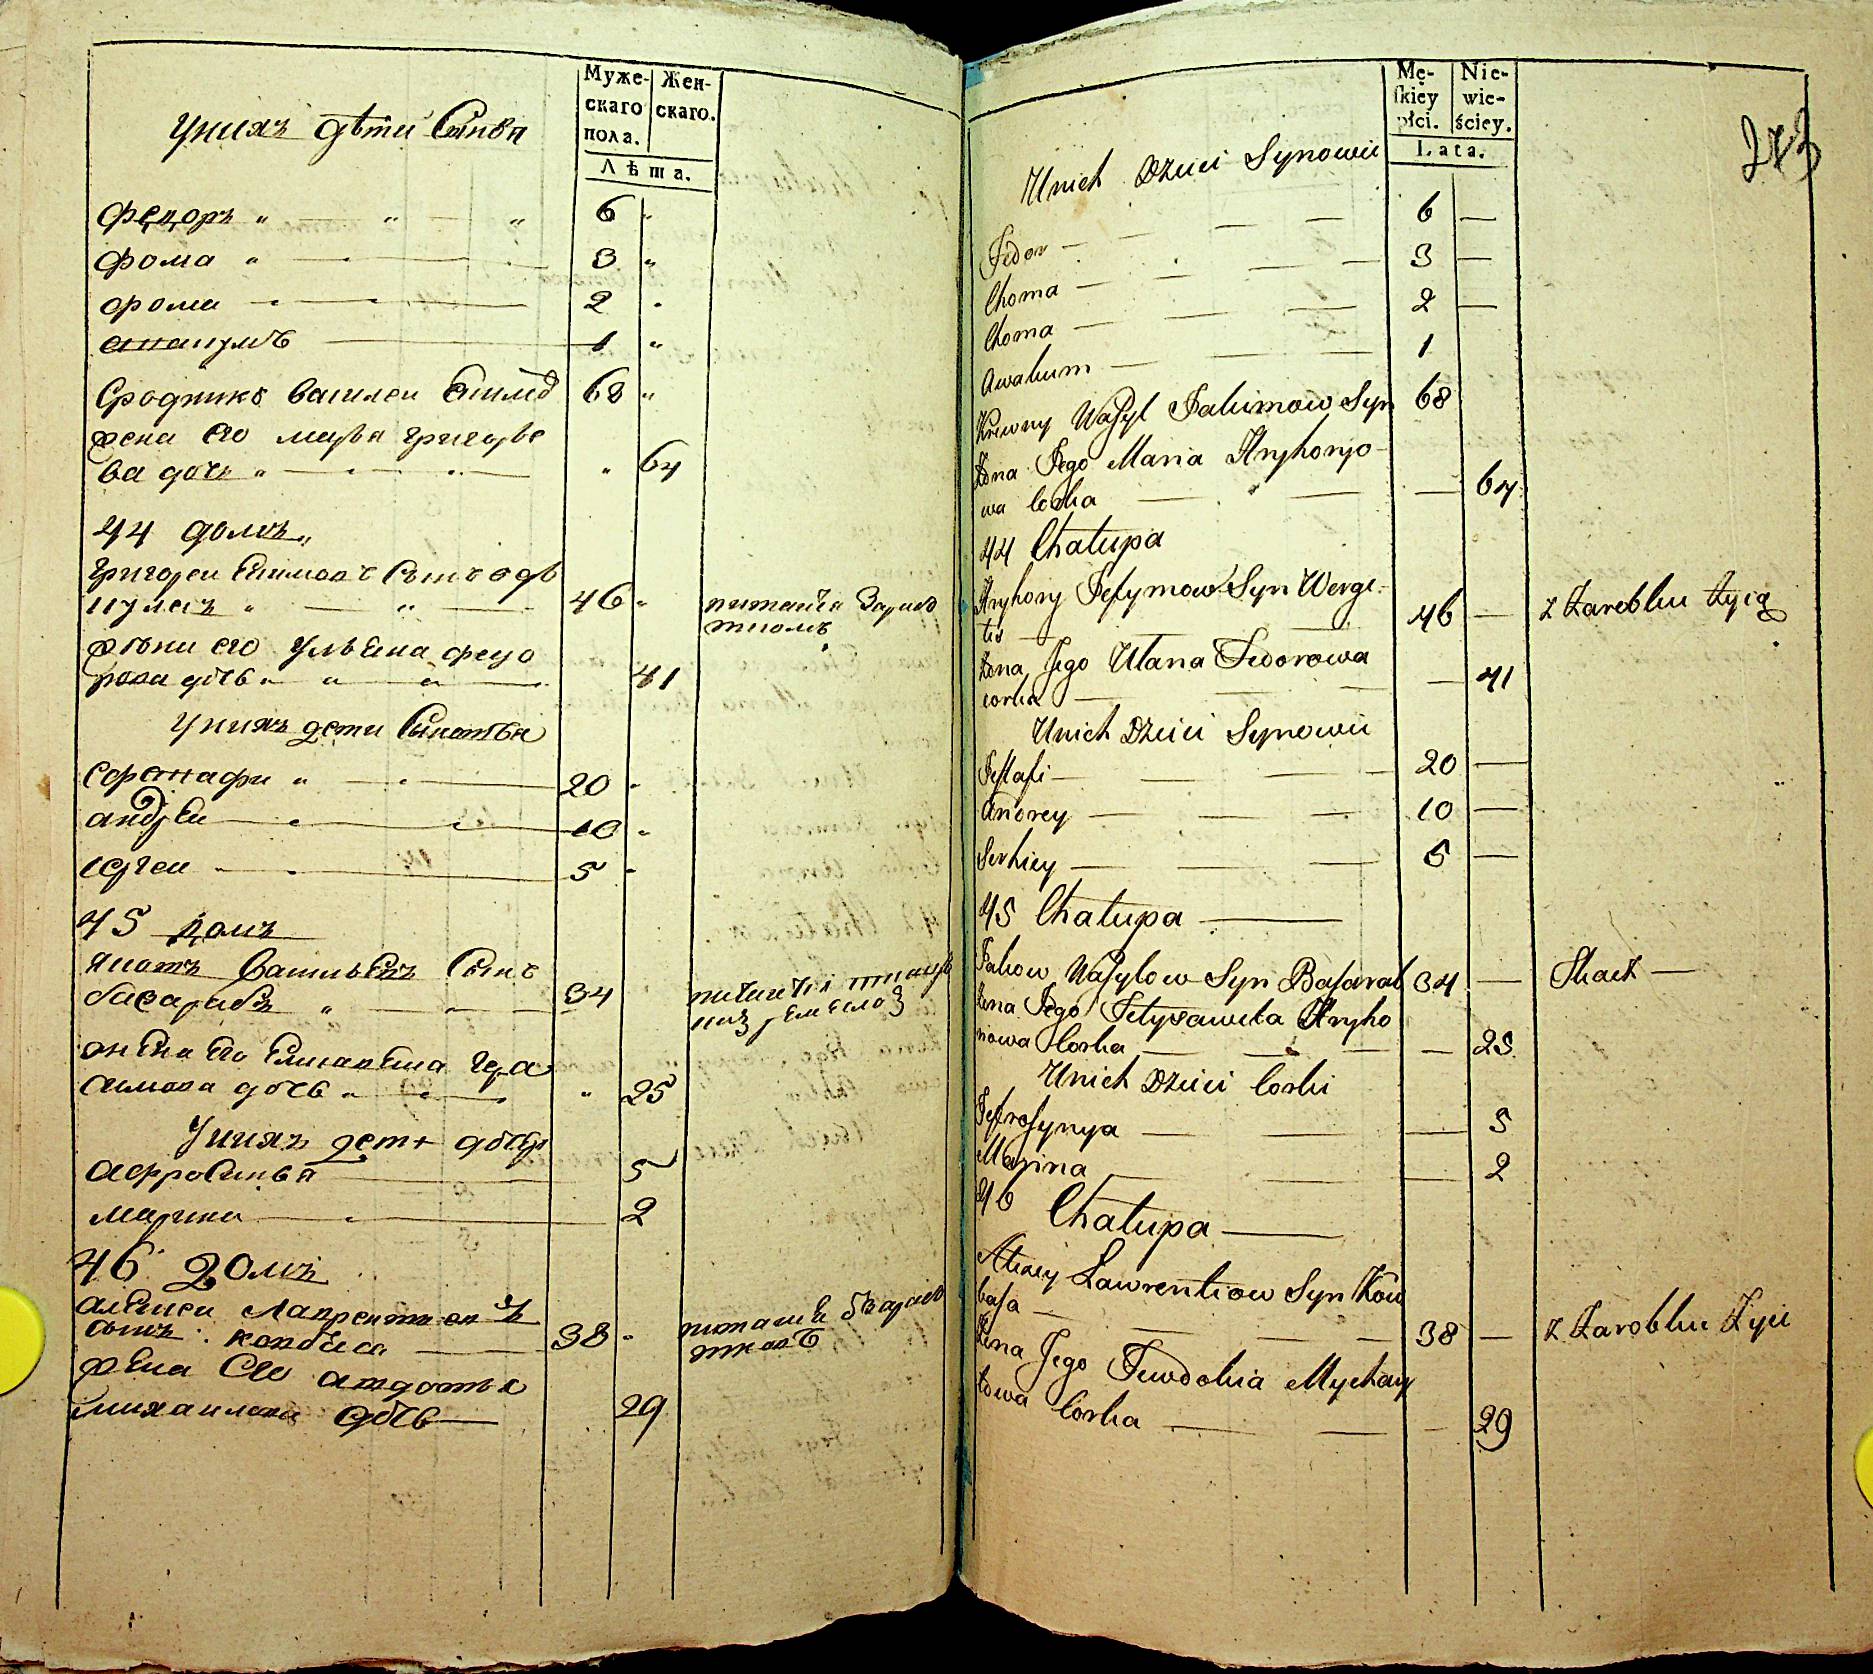 Муже-
скаго
пола.
Жен-
скаго.
Лѣта.
Унихъ дѣти Сынвя
Федоръ " — " — " 6 "
Фома " — 3 "
Фома — 2 "
1 "
Сродникъ Василеи 68 "
жена Его марѣя григорѣе
ва дочь " — " 64
44 домъ "
Григореи Ефимовъ Сынъ
" — " — 46 "
питаітся
жѣна его Улѣяна федо
рова дочь " — " — 41
Унихъ дети Синовѣя
20 "
андреи — 10 "
сергеи — 5 "
45 домъ
Васильевъ Сынъ
басарабъ " — " — 34
жѣна Его Елисавѣта Гера
симова дочь " — " 25
Унихъ дети дочеря
афросинья — 5
марина — 2
46 домъ
алексеи Лаврентиевъ
сынъ ковбаса — 38 "
жена Его авдотья
михаилова дочь — 29
Mę-
skiey
płci.
Nie-
wie-
ściey.
Lata.
273
Unich Dzieci Synowie
Fedor — 6 —
Choma — 3 —
Choma — 2 —
Awakum — 1
Krewny Wasyl Jakimow Syn 68
Żona Jego Maria Hryhoryo-
wa Corka — 64
44 Chałupa
Hryhory Jefymow Syn
— 46 — z Zarobku żyią
Żona Jego Ulana Fedorowa
corka — 41
Unich Dzieci Synowie
Jestafi — 20 —
Andrey — 10 —
Serhiey — 5 —
45 Chałupa —
Jakow Wasylow Syn Basarab 34 — Tkacz —
Żona Jego Jelyzaweta Hryho
riowa Corka — 25
Unich Dzieci Corki
Jefrosynya — 5
Maryna — 2
46
Chałupa —
Alexiy Lawrentiow Syn Kow
basa — 38 — z Zarobku Żyie
Żona Jego Fewdokia Mychay
łowa Corka — 29